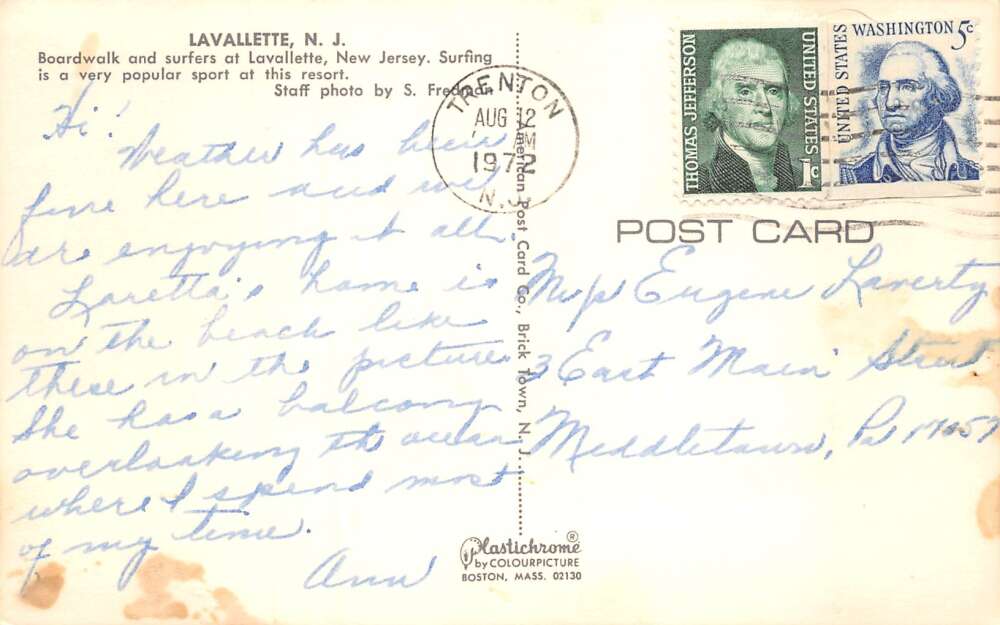 LAVALLETTE, N. J.
Boardwalk and surfers at Lavallette, New Jersey. Surfing
is a very popular sport at this resort.
Staff photo by S. Fredman
Hi!
Weather has been
fine here and we
are enjoying it all.
Loretta's home is
on the beach like
these in the picture
She has a balcony
overlooking the ocean
where I spend most
of my time.
Ann
TRENTON
AUG 12
AM
1972
N.J.
American Post Card Co., Brick Town, N. J.
Plastichrome®
by COLOURPICTURE
BOSTON, MASS. 02130
THOMAS JEFFERSON
UNITED STATES
1c
UNITED STATES
WASHINGTON 5c
POST CARD
Eugene Laverty
3 East Main Street
Middletown, Pa 17057